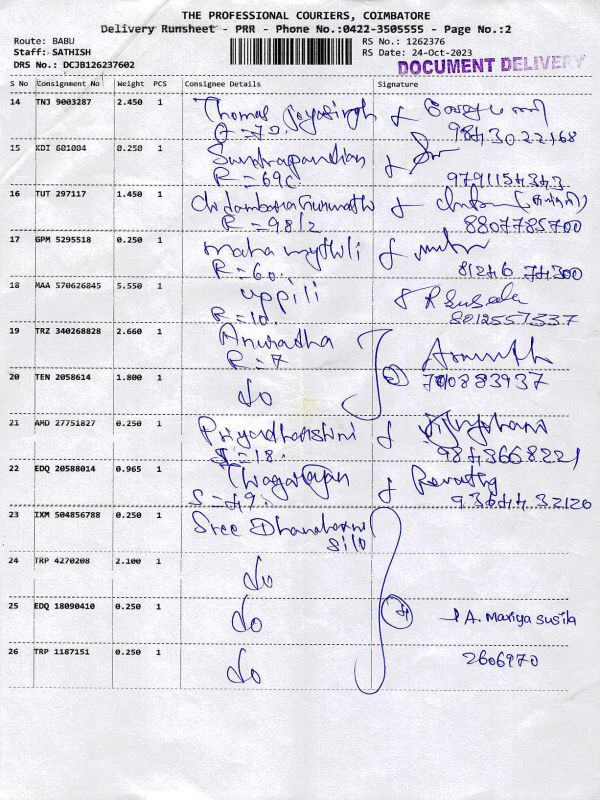 THE PROFESSIONAL COURIERS, COIMBATORE
Delivery Runsheet - PRR - Phone No.:0422-3505555 - Page No.:2
Route: BABU
RS No.: 1262376
Staff: SATHISH
RS Date: 24-Oct-2023
DRS No.: DCJB126237602
DOCUMENT DELIVERY
S No Consignment No Weight PCS Consignee Details Signature
14 TNJ 9003287 2.450 1 Thomas Jeyasingh
98430 22168
15 KDI 601004 0.250 1 Sundrapandian
R=69C 9791154343
16 TUT 297117 1.450 1
R=98/2 8807785700
17 GPM 5295518 0.250 1 maha mythili
R=60. 81246 74300
18 MAA 570626845 5.550 1 uppili
R=10. 8012557337
19 TRZ 340268828 2.660 1 Anuradha
R=7
20 TEN 2058614 1.800 1 do
21 AMD 27751827 0.250 1 Priyadharshini
S=18. 9843668221
22 EDQ 20588014 0.965 1 Thiagarajan Revathy
S=49. 93644 32120
23 IXM 504856788 0.250 1 Sree
24 TRP 4270208 2.100 1 do
25 EDQ 18090410 0.250 1 do 4 A. Mariya susila
26 TRP 1187151 0.250 1 do 2606970